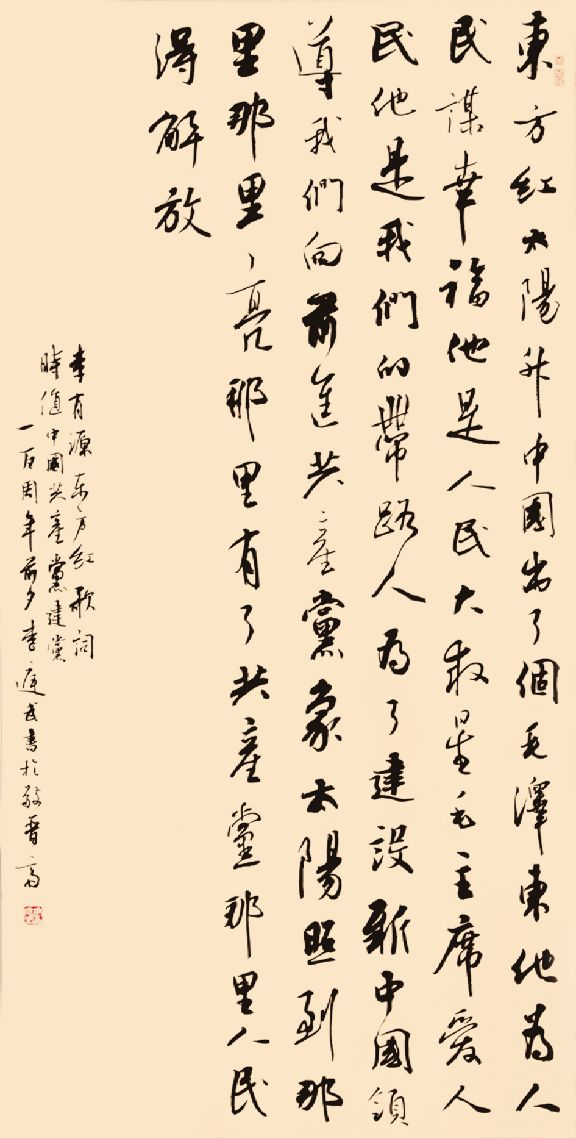 東方紅太陽升中國出了個毛澤東他為人
民謀幸福他是人民大救星毛主席愛人
民他是我們的帶路人为了建設新中國領
導我們向前進共產黨象太陽照到那
里那里亮那里有了共產黨那里人民
得解放
李有源东方紅歌詞
時值中國共產黨建党
一百周年前夕李廷武書於敬晋斋